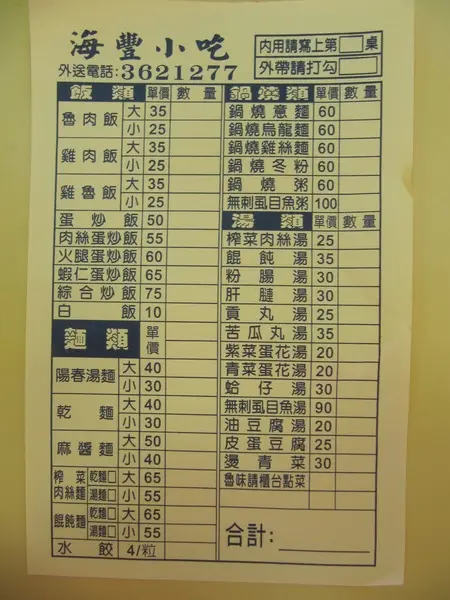 海豐小吃
外送電話:3621277
內用請寫上第 桌
外帶請打勾
飯類 單價 數量
魯肉飯 大 35
小 25
雞肉飯 大 35
小 25
雞魯飯 大 35
小 25
蛋炒飯 50
肉絲蛋炒飯 55
火腿蛋炒飯 60
蝦仁蛋炒飯 65
綜合炒飯 75
白飯 10
麵類 單價
陽春湯麵 大 40
小 30
乾麵 大 40
小 30
麻醬麵 大 50
小 40
榨菜肉絲麵 乾麵□ 大 65
湯麵□ 小 55
餛飩麵 乾麵□ 大 65
湯麵□ 小 55
水餃 4/粒
鍋燒類 單價 數量
鍋燒意麵 60
鍋燒烏龍麵 60
鍋燒雞絲麵 60
鍋燒冬粉 60
鍋燒粥 60
無刺虱目魚粥 100
湯類 單價 數量
榨菜肉絲湯 25
餛飩湯 35
粉腸湯 30
肝腱湯 30
貢丸湯 25
苦瓜丸湯 35
紫菜蛋花湯 20
青菜蛋花湯 20
蛤仔湯 30
無刺虱目魚湯 90
油豆腐湯 20
皮蛋豆腐 25
燙青菜 30
魯味請櫃台點菜
合計: